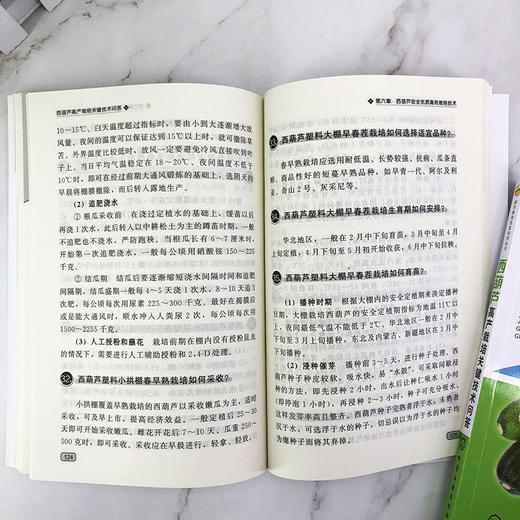 西葫芦高产栽培关键技术问答
10～15℃，白天温度超过指标时，要由小到大逐渐增大放
风量。夜间的温度可以保证达到15℃以上时，就可撤除草
苫。外界温度比较低时，放风一定要避免冷风直接吹到叶
子上。当日平均气温稳定在18～20℃、夜间温度不低于
10℃时，即可在经过前期大通风锻炼的基础上，选阴天的
早晨将棚膜撤除，而后转入露地生产。
（2）追肥浇水
① 根瓜采收前 在浇过定植水的基础上，缓苗以后
再浇1次水，此后转入以中耕松土为主的蹲苗时期，一般
不追肥也不浇水，严防跑秧。当根瓜长有6～7厘米时，
开始第一次追肥浇水，一般每公顷用硝酸铵150～225
千克。
② 结瓜期 结瓜后要逐渐缩短浇水间隔时间和追肥
间隔期，结瓜盛期一般每4～5天浇1次水，每浇2次水追
1次肥，每公顷每次用尿素225～300千克。最好在摘膜后
或是能大通风时，顺水冲入人粪尿2次，每次每公顷用
1500～2255千克。
（3）人工授粉和蘸花 栽培前期在棚内没有授粉昆虫
的情况下，需要进行人工辅助授粉和2,4-D处理。
32 西葫芦塑料小拱棚春早熟栽培如何采收？
小拱棚覆盖早熟栽培的西葫芦以采收嫩瓜为主，适时
采收，可及早上市，提高经济效益。一般定植后25～30
天即可开始采收嫩瓜，雌花开花后7～10天、瓜重250～
500克时，即可采收。采收应在早晨进行，轻拿、轻放，
124
第六章 西葫芦安全优质高效栽培技术
33 西葫芦塑料大棚早春茬栽培如何选择适宜品种？
春早熟栽培应选用耐低温、长势较强、抗病、瓜条直
顺、商品性好的短蔓早熟品种，如早青一代、阿尔及利
亚、奇山2号、灰采尼等。
34 西葫芦塑料大棚早春茬栽培生育期如何安排？
华北地区，一般在2月中下旬育苗，3月中旬至4月
上旬定植，4月下旬至5月初开始收获，6月中下旬拉秧。
35 西葫芦塑料大棚早春茬栽培如何育苗？
（1）播种时期 根据大棚内的安全定植期来决定播种
日期。大棚栽培西葫芦的安全定植期指标为地温11℃以
上，夜间最低气温不能低于2℃。华北地区一般在2月中
下旬至3月上旬播种，东北及内蒙古、新疆地区在3月中
下旬播种。
（2）浸种催芽 播种前3～5天，进行种子处理。西葫
芦种子种皮较软，吸水快，易“水鼓”，可采取间歇浸种
法，即先浸种2小时，出水后让种仁吸水1小时
（即停泡1小时），再浸种2～3小时，种仁即可吸足水分，
这样发芽率高且整齐。西葫芦种子完熟者浮于水，未熟者
沉于水，可选浮于水的种子，切忌误以为浮于水的种子均
为瘪种子而将其弃掉。
125
西葫芦
高产栽培关键技术问答